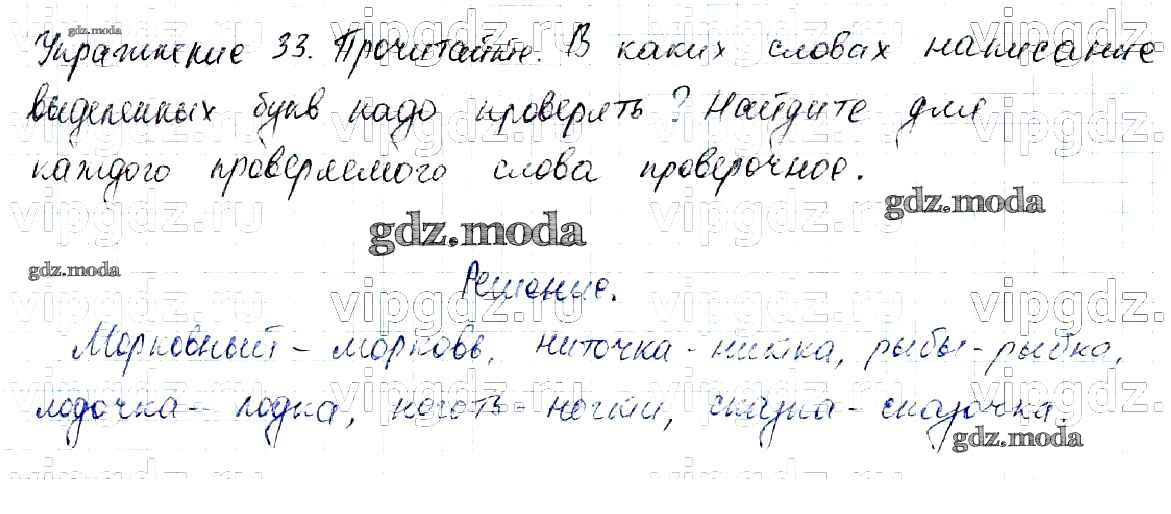 Упражнение 33. Прочитайте. В каких словах написание
выделенных букв надо проверять? Найдите для
каждого проверяемого слова проверочное.
gdz.moda
gdz.moda
gdz.moda
gdz.moda
Решение.
Морковный - морковь, ниточка - нитка, рыбы - рыбка,
лодочка - лодка, ноготь - ногти, сказка - сказочка.
gdz.moda
vipgdz.ru